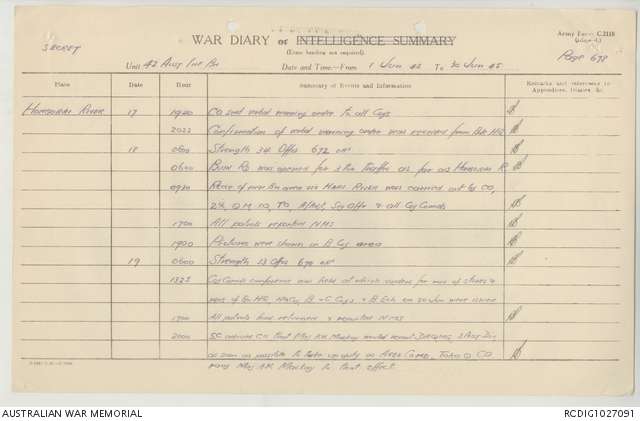 Army Form C.2118
WAR DIARY or INTELLIGENCE SUMMARY
(Erase heading not required).
SECRET
Page 678
Unit 42 Aust Inf Bn
Date and Time:—From 1 Jun 45 To 30 Jun 45
Place Date Hour Summary of Events and Information Remarks and references to Appendices, Initials, &c.
HONGORAI RIVER 17 1920 CO sent verbal warning order to all Coys
2022 Confirmation of verbal warning order was received from Bde HQ
18 0600 Strength 34 Offrs 672 OR
0640 BUIN RD was opened for 3 ton traffic as far as HONGORAI R.
0930 Recce of new Bn area HARI RIVER was carried out by CO,
2IC, QM, IO, TO, Offr & all Coy Comds
1700 All patrols reported NMS
1900 Pictures were shown in B Coy area
19 0600 Strength 33 Offrs 670 OR
1325 Coy Comds conference was held at which orders for move of
move of Bn HQ, HQ Coy, B & C Coys & B Ech on 20 Jun were issued
1700 All patrols have returned & reported NMS
2000 SC advised CO that Maj AR Mackay would
as soon as possible to take up duty as Area Comd, TOROKINA. CO
Maj AR Mackay to that effect.
AUSTRALIAN WAR MEMORIAL
RCDIG1027091